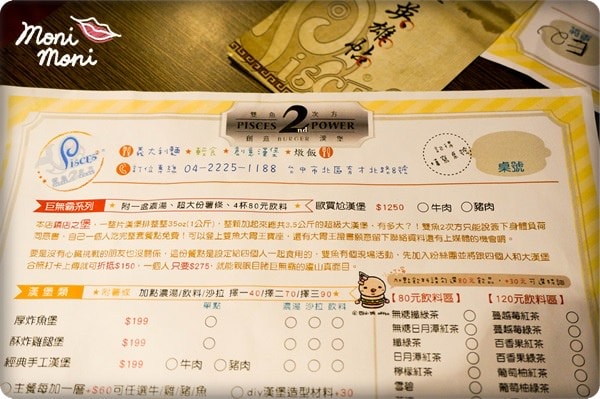 Moni
Moni
英雄帖
雙魚 2nd 次方
PISCES POWER
創意 BURGER 漢堡
PISCES
義大利麵 ★ 輕食 ★ 創意漢堡 ★ 燉飯
訂位專線 04-2225-1188 台中市北區育才北路8號
桌號
巨無霸系列 附一盆濃湯、超大份薯條、4杯80元飲料 歐買尬漢堡 $1250 牛肉 豬肉
本店鎮店之堡，一整片漢堡排整整35oz(1公斤)，整顆加起來總共3.5公斤的超級大漢堡，有多大？！雙魚2次方只能說簽下身體負荷
同意書，自己一個人吃完整套餐點免費！可以登上雙魚大胃王寶座，還有大胃王
合照打卡上傳就可折抵$150，一個人只要$275，就能親眼目睹巨無霸的廬山真面目。
漢堡類 ★附薯條 加點濃湯/飲料/沙拉 擇一40/擇二70/擇三90★
【80元飲料區】 【120元飲料區】
單點 濃湯 飲料 沙拉
厚炸魚堡 $199
酥炸雞腿堡 $199
經典手工漢堡 $199 牛肉 豬肉
主餐每加一層+$60可任選牛/雞/豬/魚 div漢堡造型材料+30
無糖纖綠茶 蔓越莓紅茶
無糖日月潭紅茶 蔓越莓綠茶
纖綠茶 百香果紅茶
日月潭紅茶 百香果綠茶
檸檬紅茶 葡萄柚紅茶
雪碧 葡萄柚綠茶